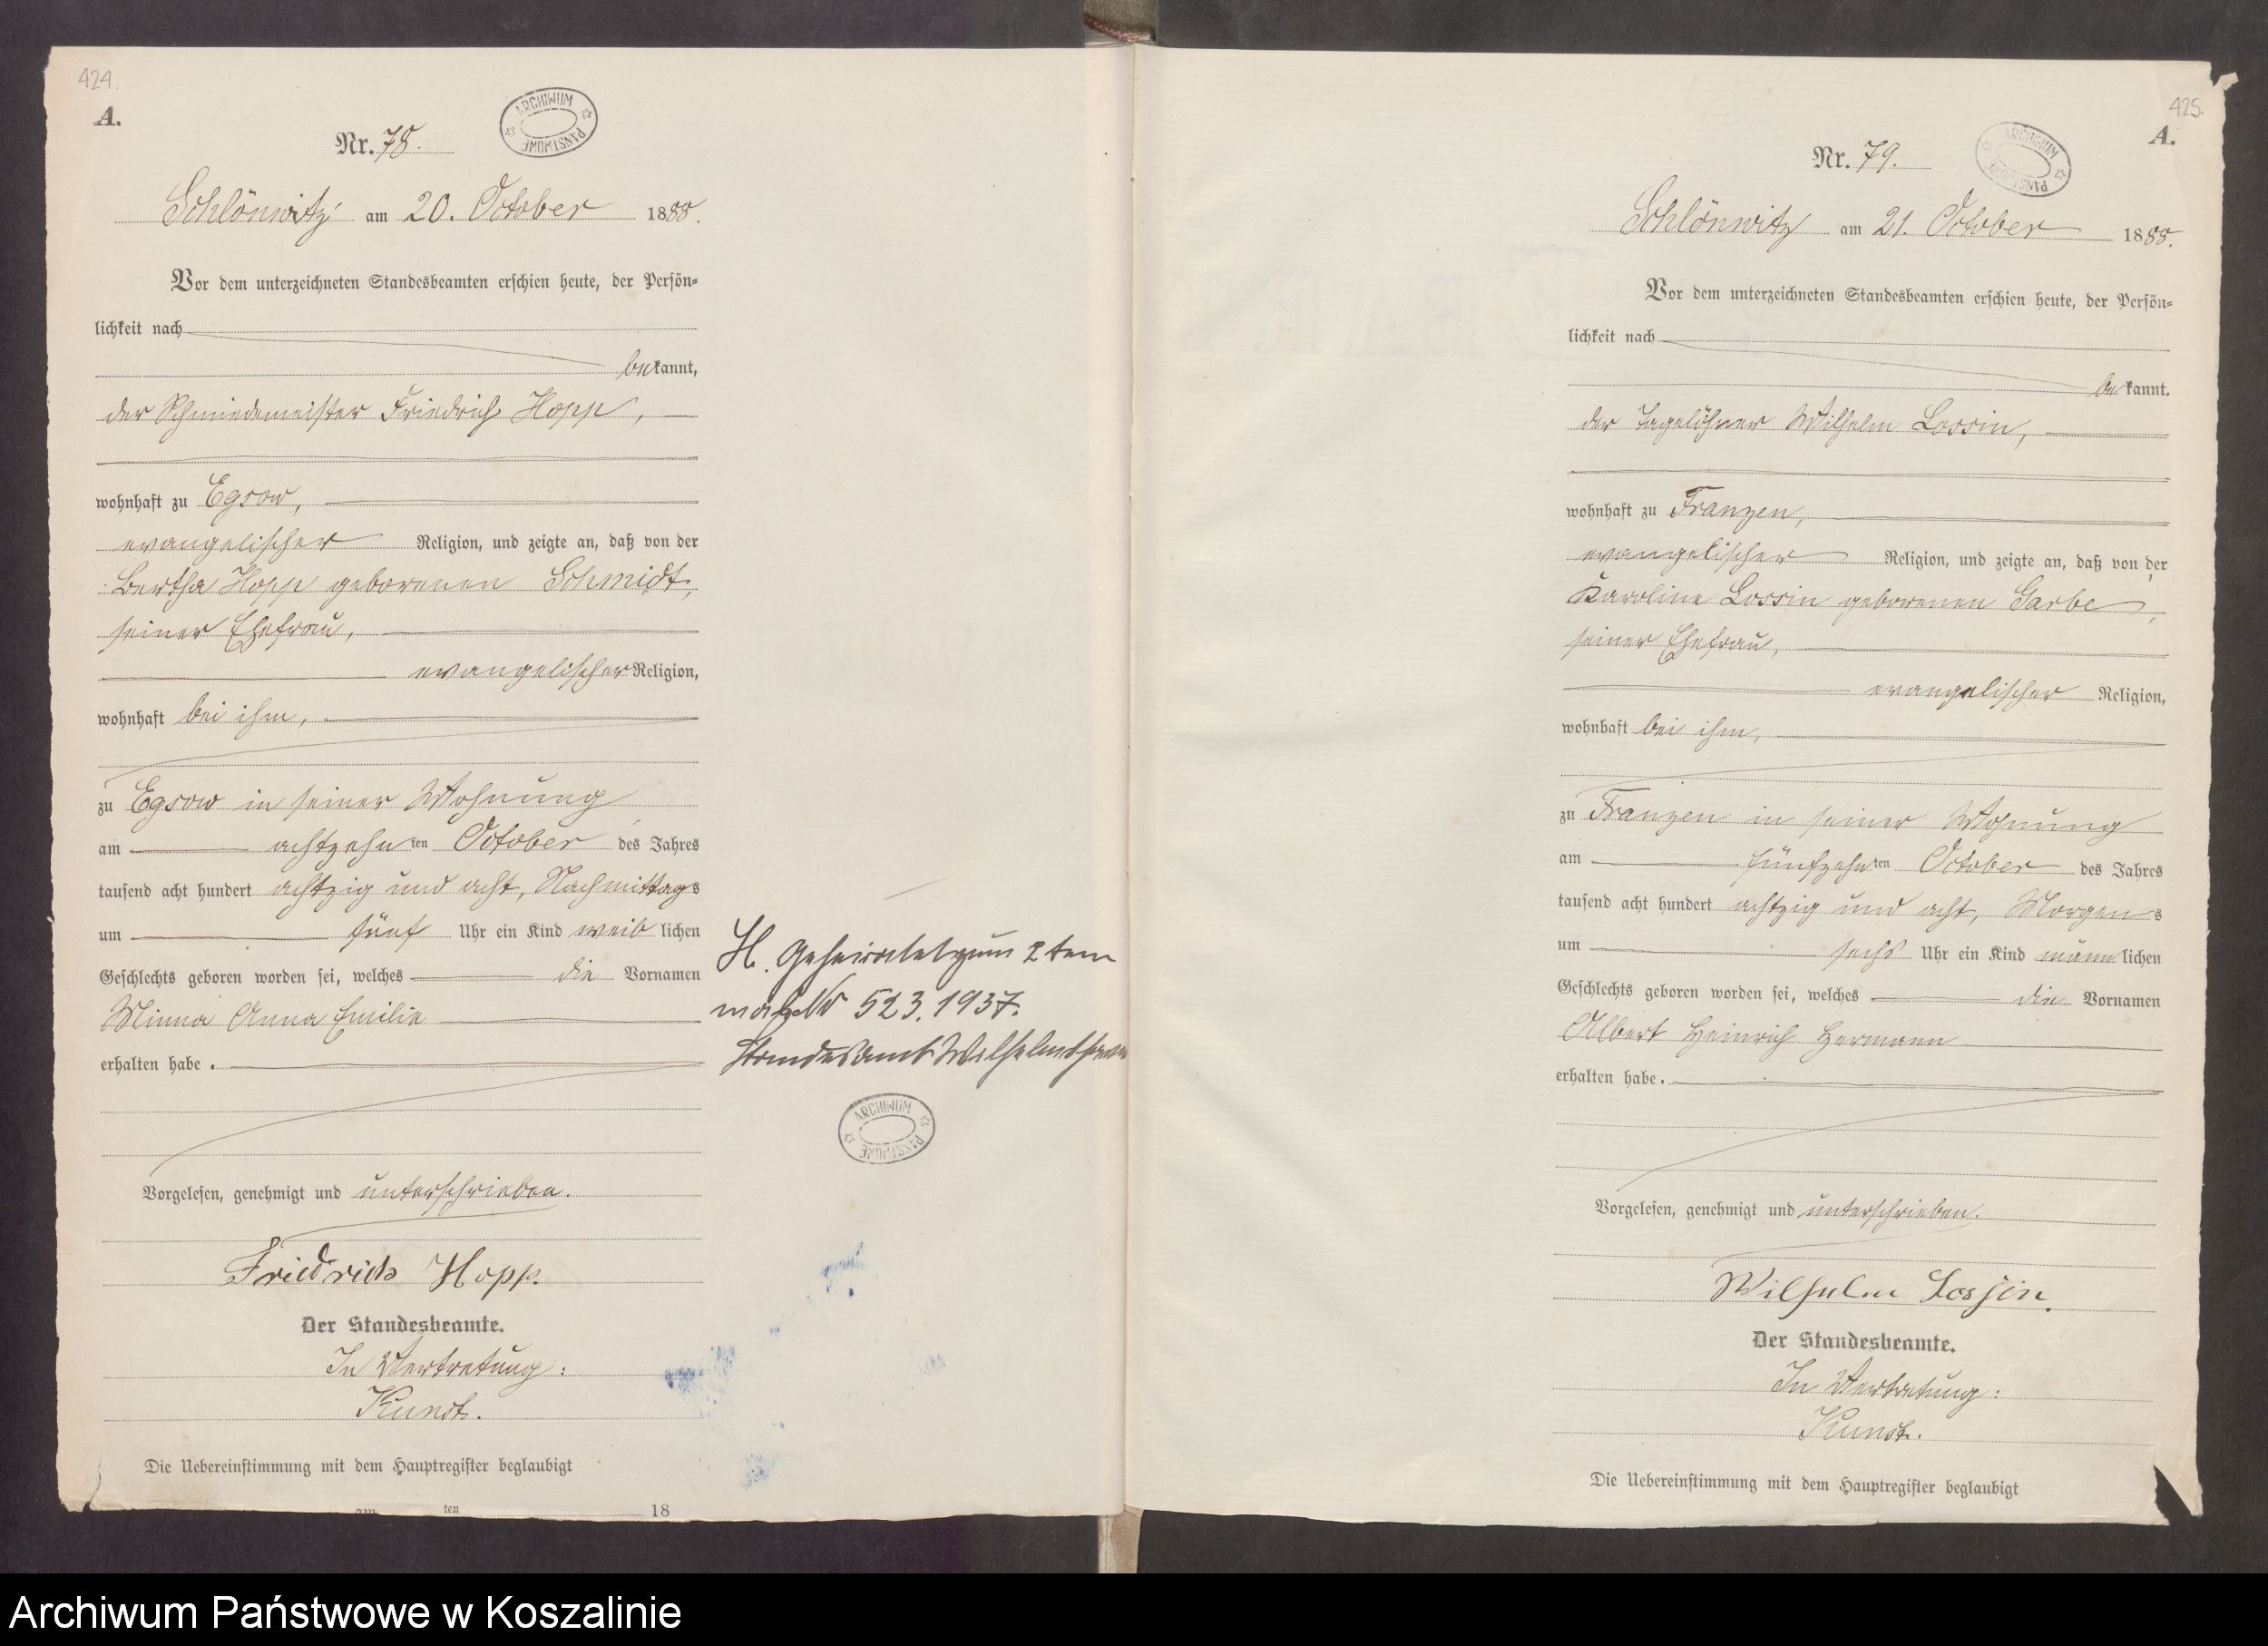 424.
A.
ARCHIWUM PAŃSTWOWE
Nr. 78.
Schlönwitz am 20. October 1888.
Vor dem unterzeichneten Standesbeamten erschien heute, der Persön-
lichkeit nach
bekannt,
der Schmiedemeister Friedrich Hopp,
wohnhaft zu Egsow,
evangelischer Religion, und zeigte an, daß von der
Bertha Hopp geborenen Schmidt,
seiner Ehefrau,
evangelischer Religion,
wohnhaft bei ihm,
zu Egsow in seiner Wohnung
am achtzehnten October des Jahres
tausend acht hundert achtzig und acht, Nachmittags
um fünf Uhr ein Kind weiblichen
Geschlechts geboren worden sei, welches die Vornamen
Minna Anna Emilie
erhalten habe.
Vorgelesen, genehmigt und unterschrieben.
Friedrich Hopp.
Der Standesbeamte.
In Vertretung:
Kunst.
Die Uebereinstimmung mit dem Hauptregister beglaubigt
am ten 18
H. Geheiratet zum 2ten
mal Nr 523.1937.
Standesamt Wilhelmshaven
ARCHIWUM PAŃSTWOWE
425.
A.
ARCHIWUM PAŃSTWOWE
Nr. 79.
Schlönwitz am 21. October 1888.
Vor dem unterzeichneten Standesbeamten erschien heute, der Persön-
lichkeit nach
bekannt.
der Tagelöhner Wilhelm Lossin,
wohnhaft zu Franzen,
evangelischer Religion, und zeigte an, daß von der
Karoline Lossin geborenen Garbe,
seiner Ehefrau,
evangelischer Religion,
wohnhaft bei ihm,
zu Franzen in seiner Wohnung
am fünfzehnten October des Jahres
tausend acht hundert achtzig und acht, Morgens
um sechs Uhr ein Kind männlichen
Geschlechts geboren worden sei, welches die Vornamen
Albert Heinrich Hermann
erhalten habe.
Vorgelesen, genehmigt und unterschrieben.
Wilhelm Lossin.
Der Standesbeamte.
In Vertretung:
Kunst.
Die Uebereinstimmung mit dem Hauptregister beglaubigt
Archiwum Państwowe w Koszalinie